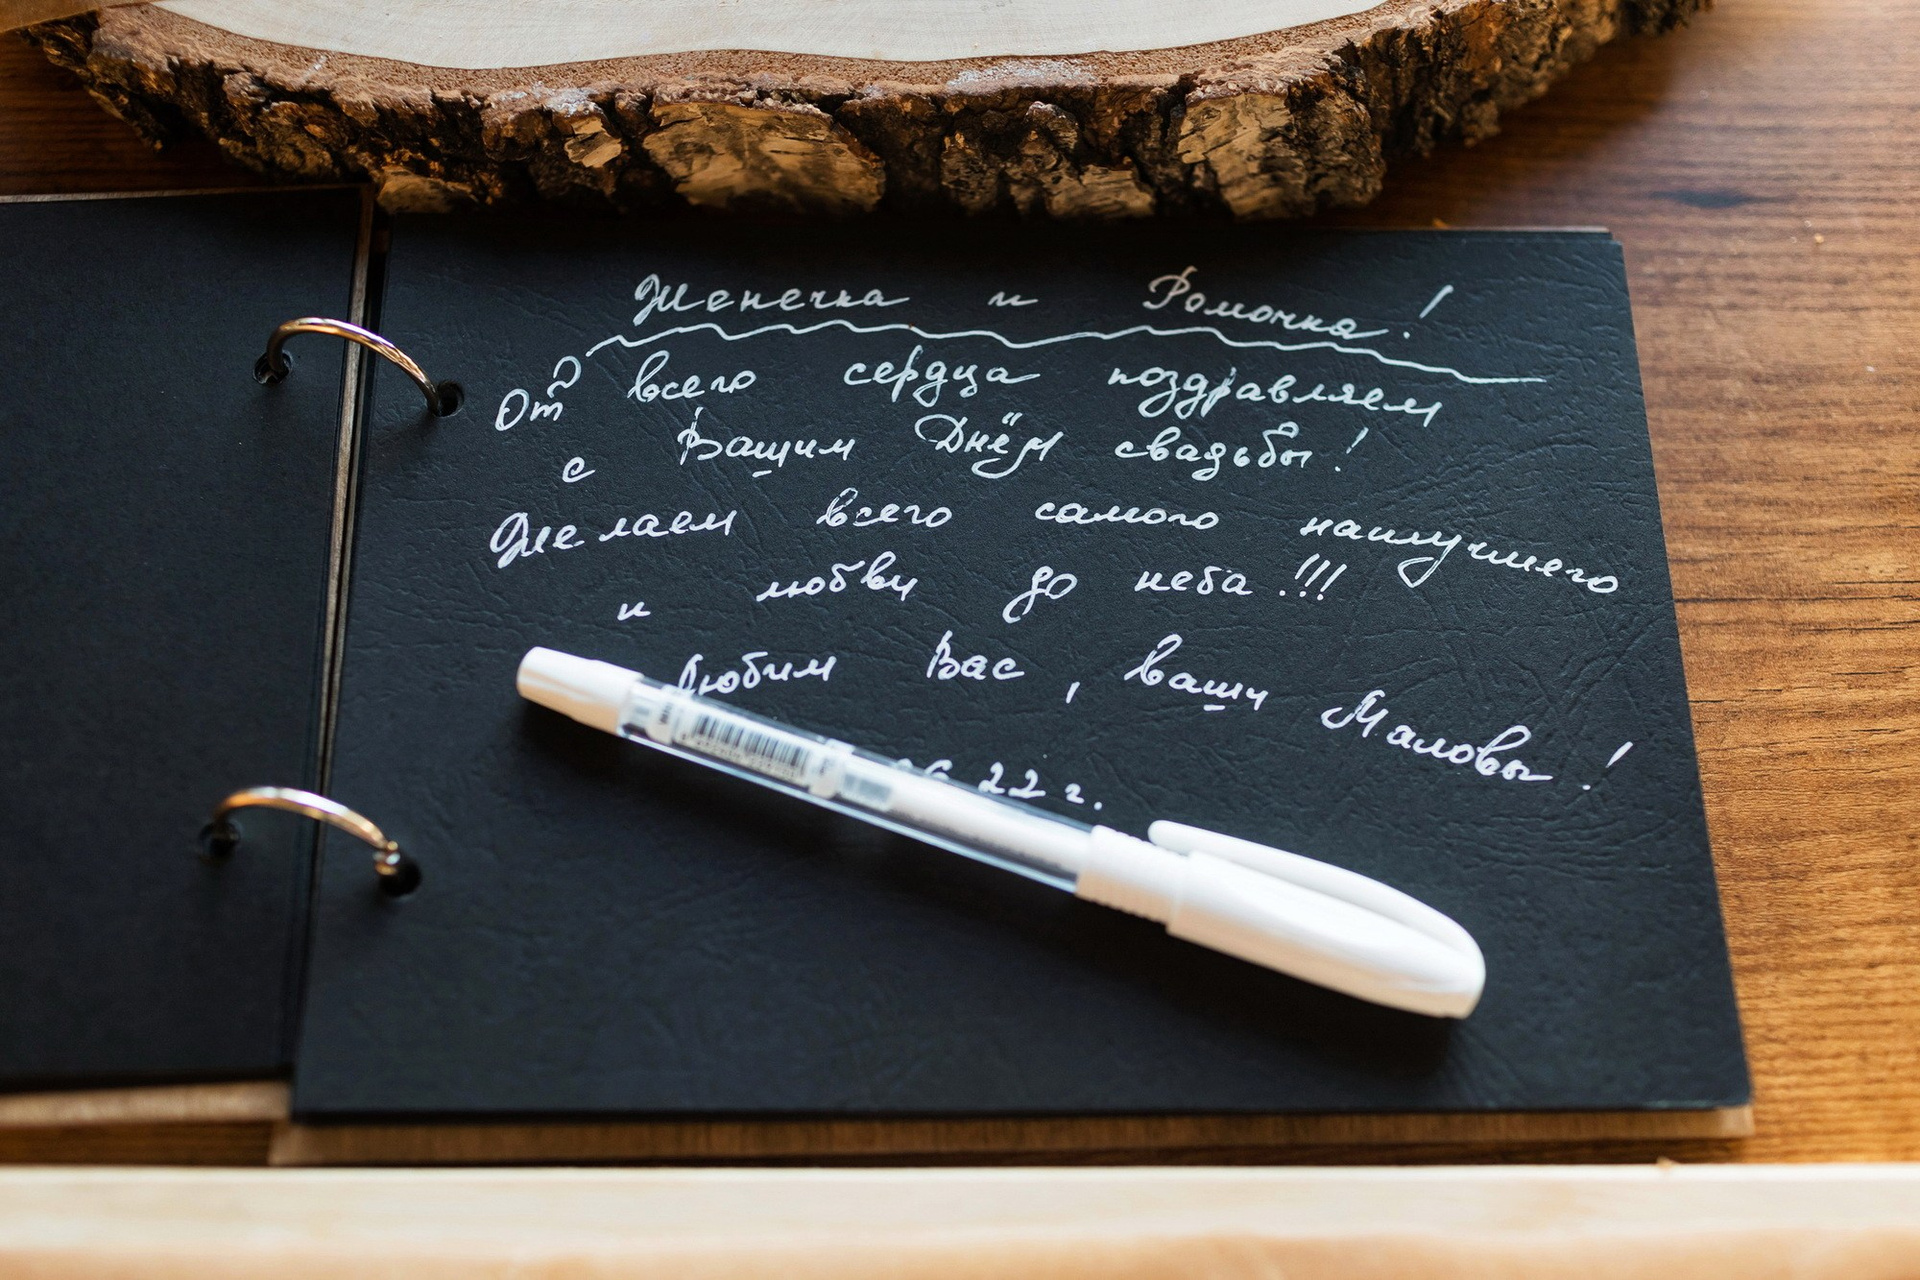 Женечка и Ромочка!
От всего сердца поздравляем
с Вашим Днём свадьбы!
Желаем всего самого наилучшего
и любви до неба!!!
Любим Вас, ваши Маловы!
22 г.